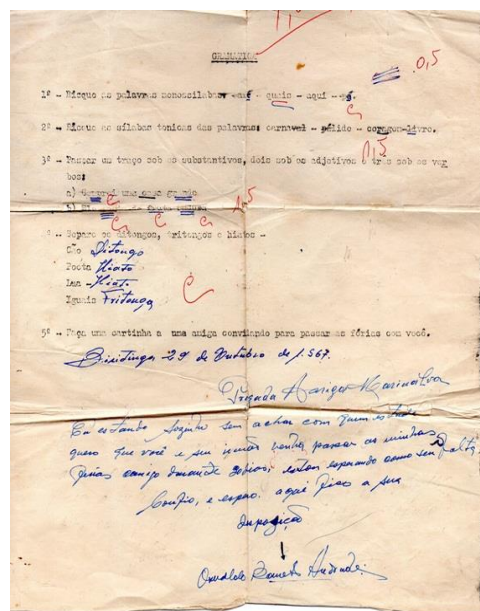 GRAMATICA
0,5
1º - Risque as palavras monossilabas: - quais - aqui - pé.
2º - Risque as silabas tonicas das palavras: carnaval - pálido - coragem-livro.
1,5
3º - Passar um traço sob os substantivos, dois sob os adjetivos e tres sob os ver
bos:
a) Comprei uma casa grande
b)
1,5
- Separe os ditongos, tritongos e hiatos -
Cão Ditongo
Poeta Hiato
Lua - Hiato
Iguais Tritongo
5º - Faça uma cartinha a uma amiga convidando para passar as férias com você.
29 de Outubro de 1.967.
Prezada Amiga Marinalva
Eu estando sem achar com quem
quero que você e seu irmão venha passar as minhas
ferias comigo esperando como sem falta.
Confio, e espero. aqui fico a sua
disposição
Oswaldo Andrade